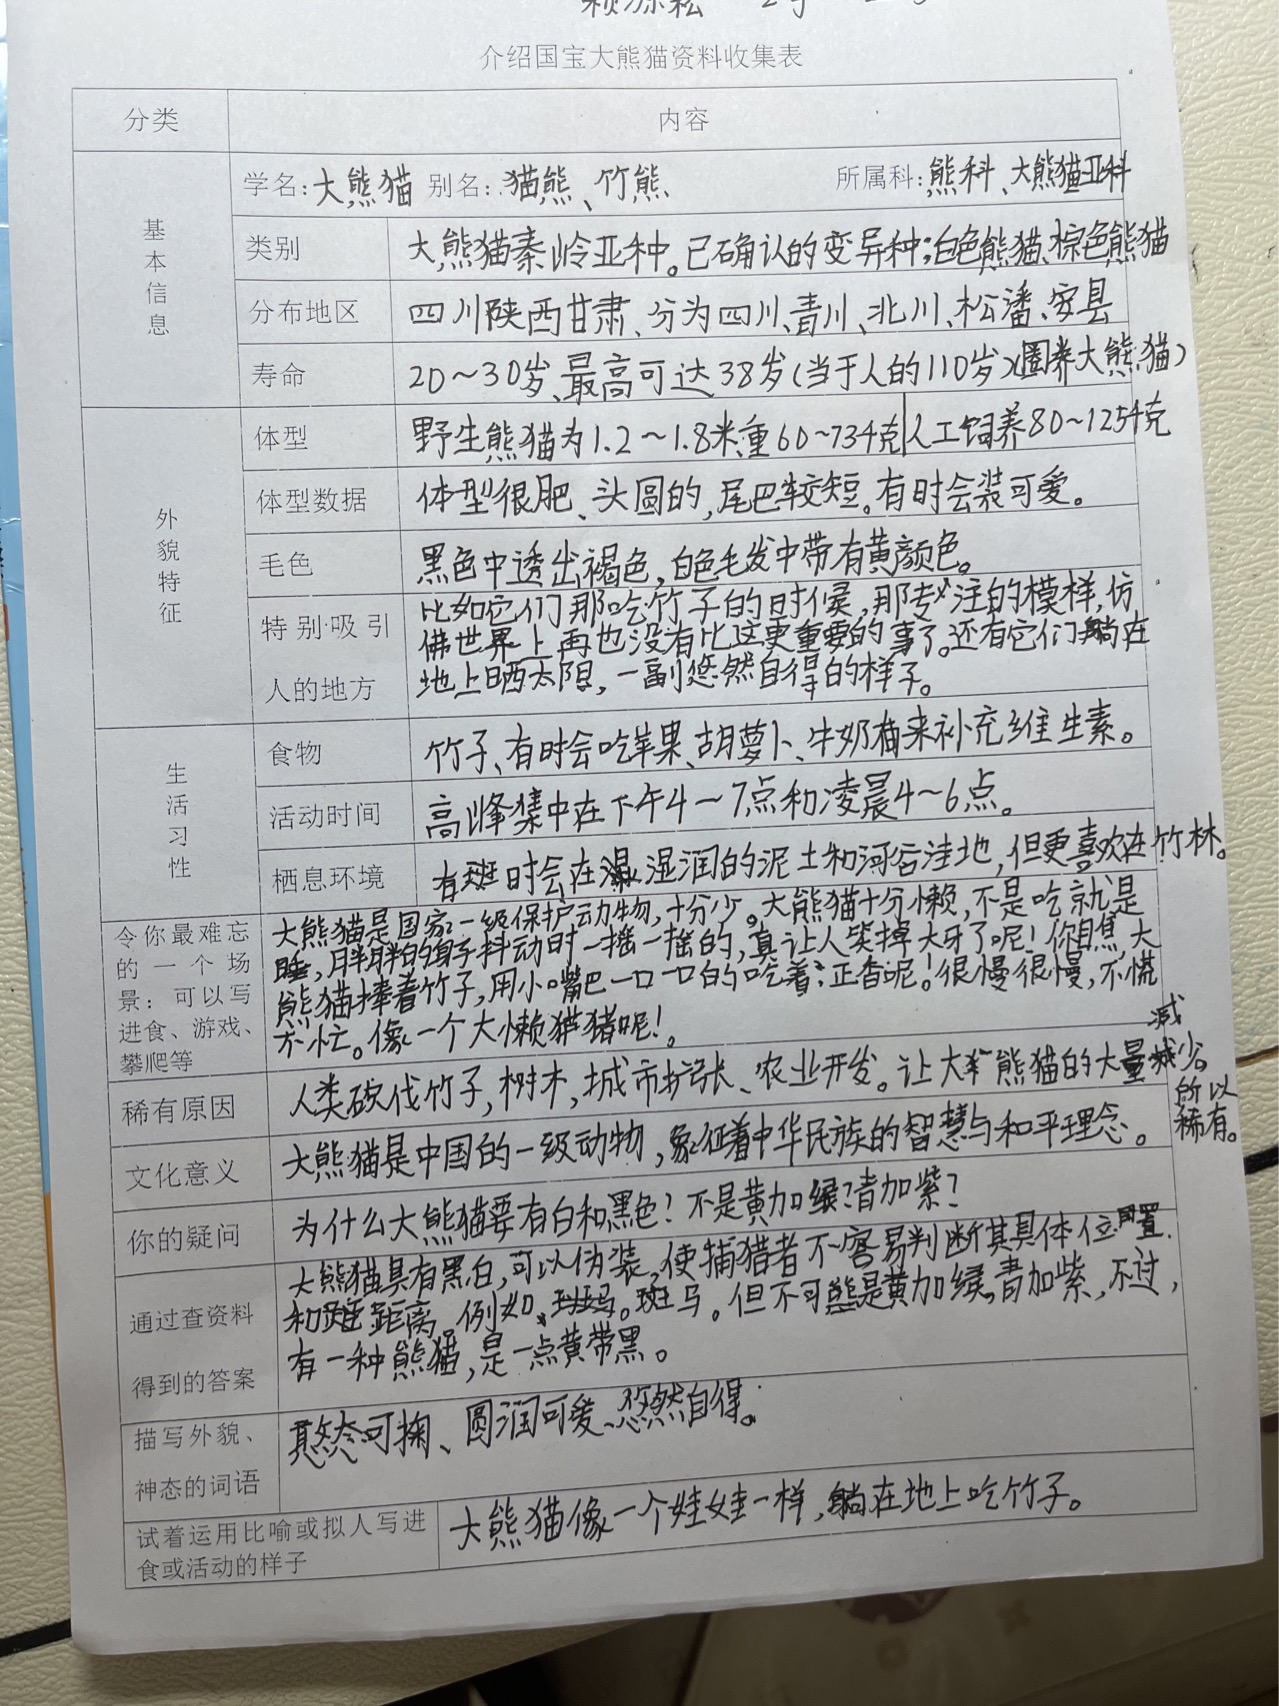 介绍国宝大熊猫资料收集表
分类 内容
基本信息
学名:大熊猫 别名:猫熊、竹熊 所属科:熊科、大熊猫亚科
类别 大熊猫秦岭亚种。已确认的变异种;白色熊猫、棕色熊猫
分布地区 四川陕西甘肃、分为四川、青川、北川、松潘、安县
寿命 20~30岁、最高可达38岁(当于人的110岁)(圈养大熊猫)
外貌特征
体型 野生熊猫为1.2~1.8米、重60~73千克|人工饲养80~125千克
体型数据 体型很肥、头圆的,尾巴较短。有时会装可爱。
毛色 黑色中透出褐色,白色毛发中带有黄颜色。
特别吸引人的地方 比如它们那吃竹子的时候,那专注的模样,仿
佛世界上再也没有比这更重要的事了。还有它们躺在
地上晒太阳,一副悠然自得的样子。
生活习性
食物 竹子、有时会吃苹果、胡萝卜、牛奶来补充维生素。
活动时间 高峰集中在下午4~7点和凌晨4~6点。
栖息环境 有时会在湿润的泥土和河谷洼地,但更喜欢在竹林。
令你最难忘的一个场景:可以写进食、游戏、攀爬等
大熊猫是国家一级保护动物,十分少。大熊猫十分懒,不是吃就是
睡,胖胖的身子抖动时一摇一摇的,真让人笑掉大牙了呢!你瞧,大
熊猫捧着竹子,用小嘴巴一口一口的吃着:正香呢!很慢很慢,不慌
不忙。像一个大懒猪呢!
稀有原因 人类砍伐竹子,树木,城市扩张、农业开发。让大熊猫的大量减少
所以
稀有。
文化意义 大熊猫是中国的一级动物,象征着中华民族的智慧与和平理念。
你的疑问 为什么大熊猫要有白和黑色?不是黄加绿?青加紫?
通过查资料得到的答案 大熊猫具有黑白,可以伪装,使捕猎者不容易判断其具体位置
和距离,例如、斑马。但不可能是黄加绿,青加紫,不过,
有一种熊猫,是一点黄带黑。
描写外貌、神态的词语 憨态可掬、圆润可爱、悠然自得。
试着运用比喻或拟人写进食或活动的样子 大熊猫像一个娃娃一样,躺在地上吃竹子。